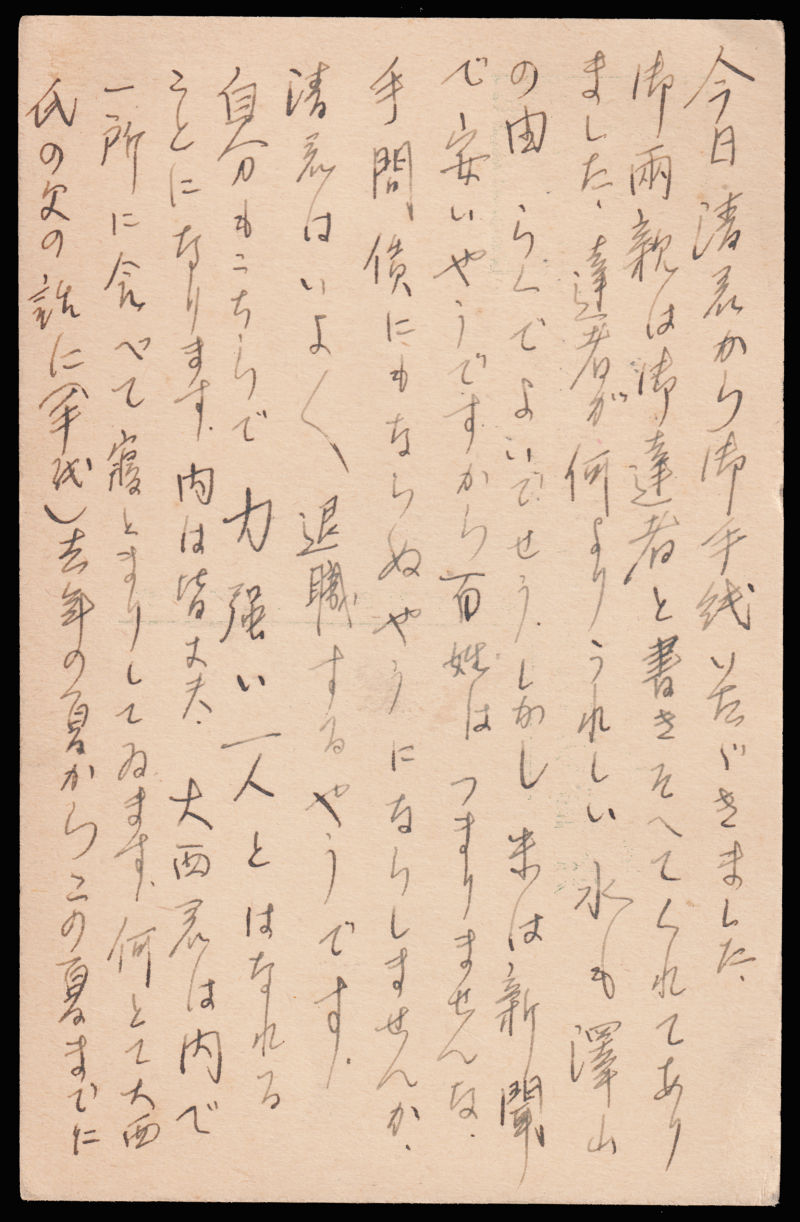 今日清君から御手紙いたゞきました、
御兩親は御達者と書きそへてくれてあり
ました、達者が何よりうれしい 水も澤山
の由、らくでよいでせう、しかし 米は新聞
で安いやうですから百姓はつまりませんな、
手間債にもならぬやうにならしませんか、
清君はいよ〱退職するやうです、
自分もこちらで力強い一人とはなれる
ことになります、内は皆丈夫、大西君は内で
一所に食べて寢とまりしてゐます、何とて大西
氏の父の話に(手紙)去年の夏からこの夏までに